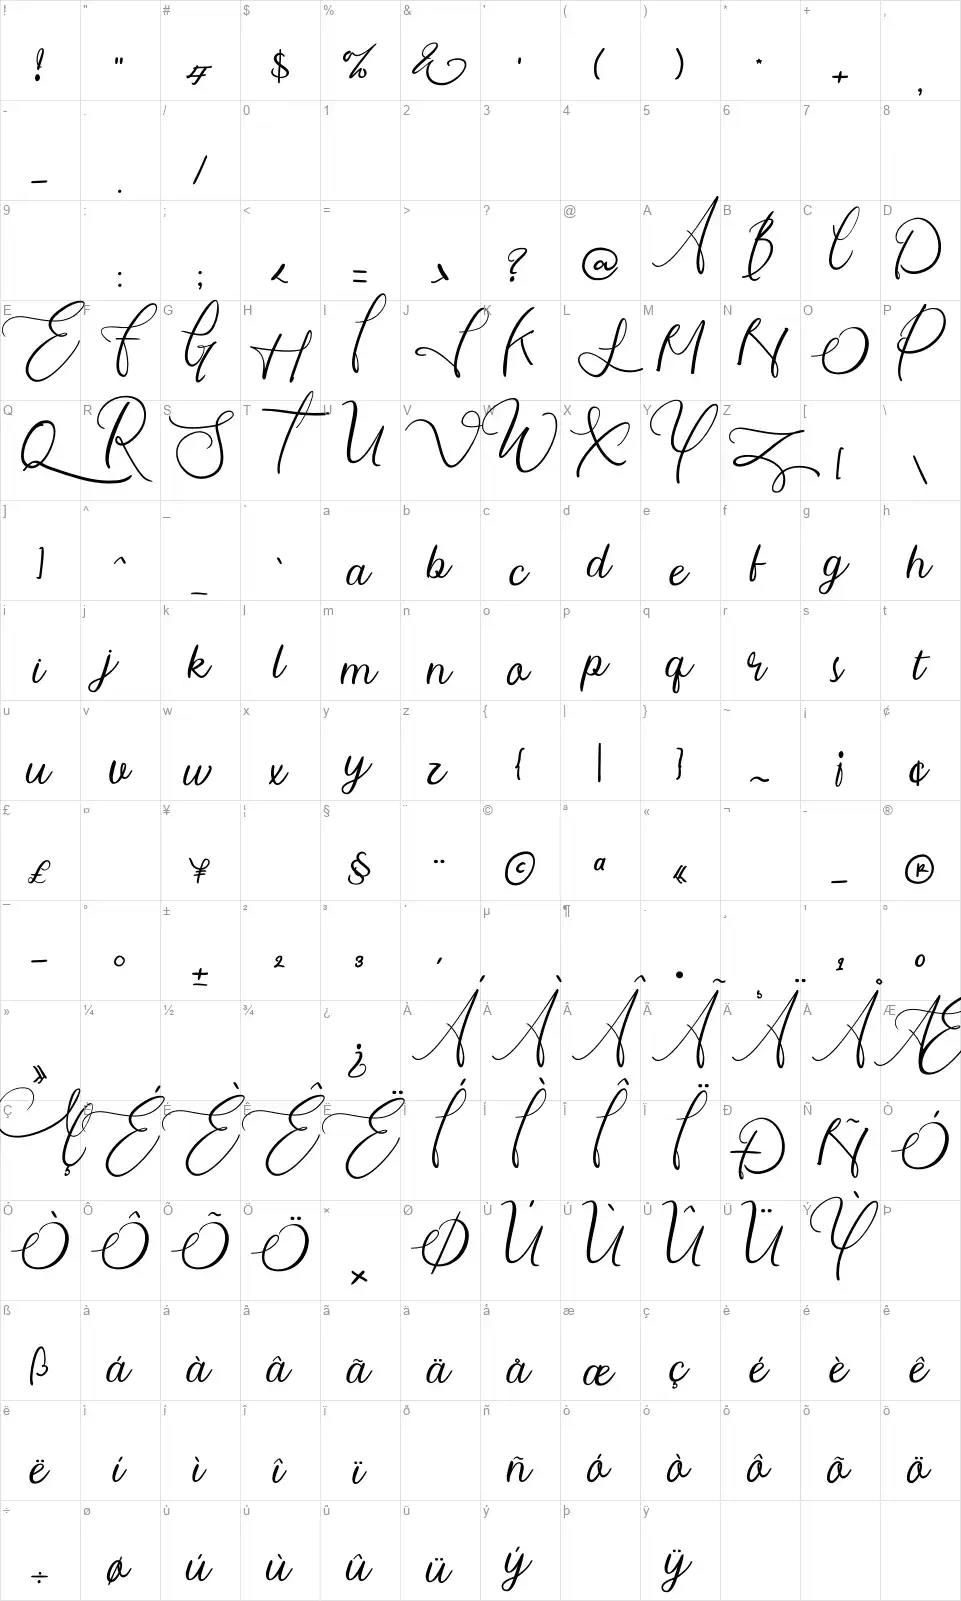 ! " # $ % & ' ( ) * + ,
! " # $ % & ' ( ) * + ,
- . / 0 1 2 3 4 5 6 7 8
- . /
9 : ; < = > ? @ A B C D
: ; < = > ? @ A B C D
E F G H I J K L M N O P
E F G H I J K L M N O P
Q R S T U V W X Y Z [ \
Q R S T U V W X Y Z [ \
] ^ _ ` a b c d e f g h
] ^ _ ` a b c d e f g h
i j k l m n o p q r s t
i j k l m n o p q r s t
u v w x y z { | } ~ ¡ ¢
u v w x y z { | } ~ ¡ ¢
£ ¤ ¥ ¦ § ¨ © ª « ¬ - ®
£ ¥ § ¨ © ª « - ®
¯ ° ± ² ³ ´ µ ¶ · ¸ ¹ º
¯ ° ± ² ³ ´ · ¸ ¹ º
» ¼ ½ ¾ ¿ À Á Â Ã Ä Å Æ
» ¿ Á À Â Ã Ä Å Æ
Ç È É Ê Ë Ì Í Î Ï Ð Ñ Ò
Ç É È Ê Ë Í Ì Î Ï Ð Ñ Ó
Ó Ô Õ Ö × Ø Ù Ú Û Ü Ý Þ
Ò Ô Õ Ö × Ø Ú Ù Û Ü Ỳ
ß à á â ã ä å æ ç è é ê
ß á à â ã ä å æ ç é è ê
ë ì í î ï ð ñ ò ó ô õ ö
ë í ì î ï ñ ó ò ô õ ö
÷ ø ù ú û ü ý þ ÿ
÷ ø ú ù û ü ý ÿ